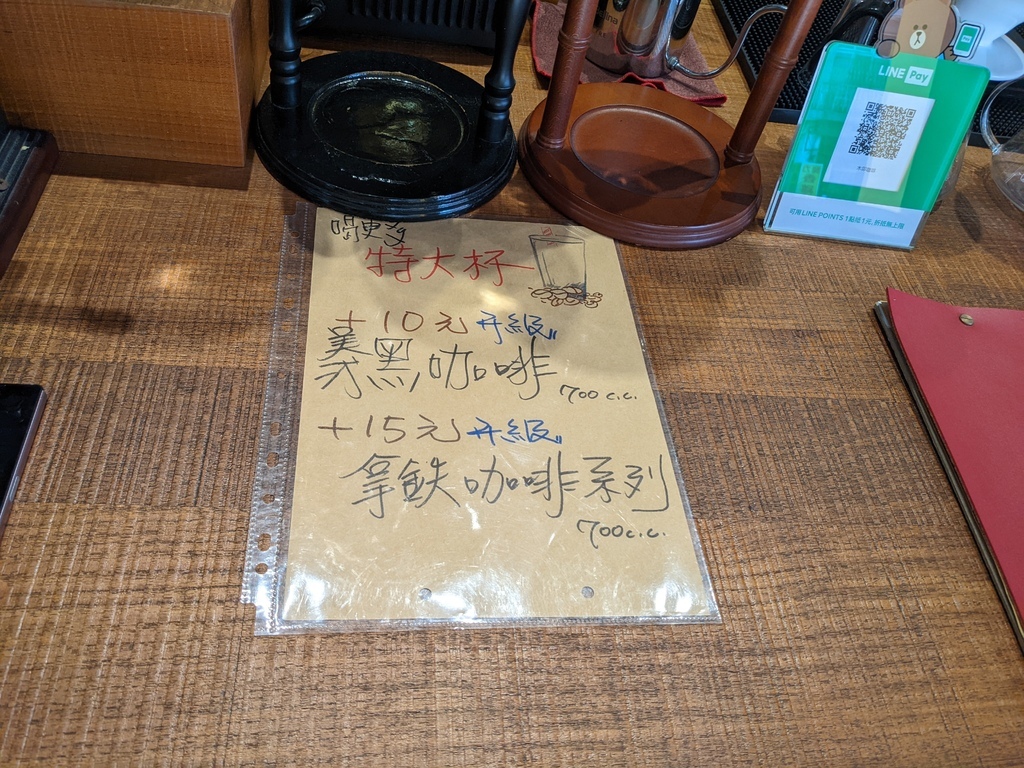 喝更多
特大杯
+10元升級
美式黑咖啡
700 c.c.
+15元升級
拿鐵咖啡系列
700c.c.
LINE Pay
可用 LINE POINTS 1點抵1元, 折抵無上限